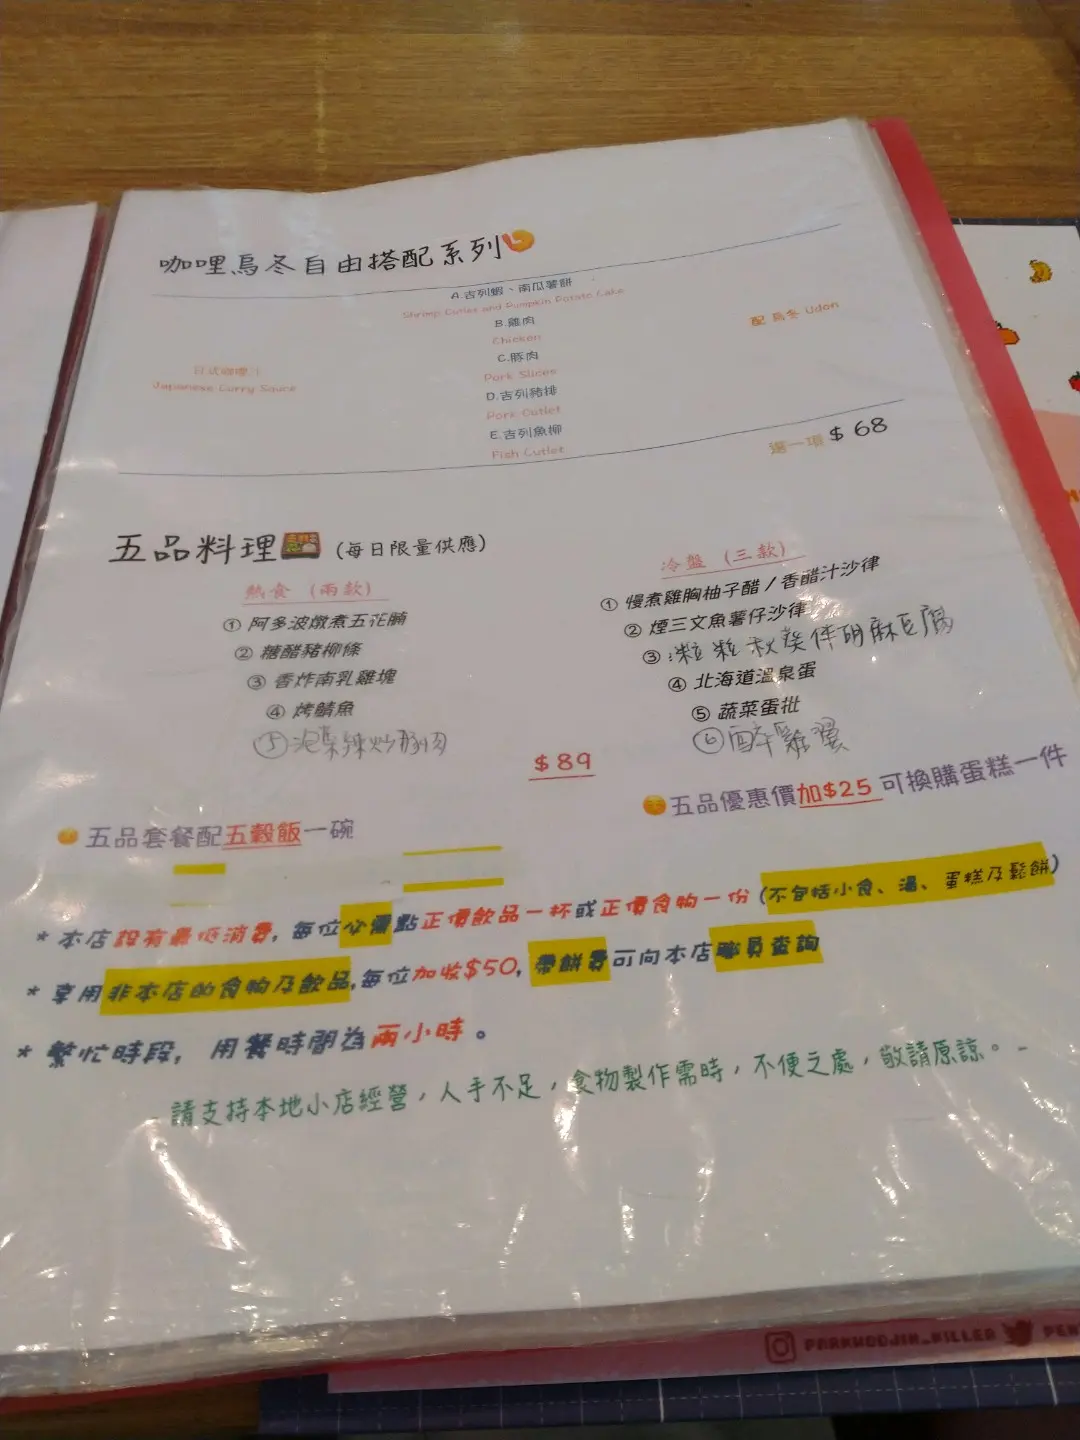 咖哩烏冬自由搭配系列
A.吉列蝦、南瓜薯餅
Shrimp Cutlet and Pumpkin Potato Cake
B.雞肉
Chicken
C.豚肉
Pork Slices
D.吉列豬排
Pork Cutlet
E.吉列魚柳
Fish Cutlet
日式咖哩汁
Japanese Curry Sauce
配 烏冬 Udon
選一項 $ 68
五品料理 (每日限量供應)
熱食 (兩款)
① 阿多波燉煮五花腩
② 糖醋豬柳條
③ 香炸南乳雞塊
④ 烤鯖魚
⑤ 泡菜辣炒豚肉
冷盤 (三款)
① 慢煮雞胸柚子醋 / 香醋汁沙律
② 煙三文魚薯仔沙律
③ 粒粒秋葵伴胡麻豆腐
④ 北海道溫泉蛋
⑤ 蔬菜蛋批
⑥ 醉雞翼
$89
五品套餐配五穀飯一碗
五品優惠價加$25 可換購蛋糕一件
* 本店設有最低消費, 每位必需點正價飲品一杯或正價食物一份 (不包括小食、湯、蛋糕及鬆餅)
* 享用非本店的食物及飲品,每位加收$50, 帶餅費可向本店職員查詢
* 繁忙時段, 用餐時間為兩小時。
- 請支持本地小店經營，人手不足，食物製作需時，不便之處，敬請原諒。 -
PARKHOOJIN_KILLER
PEN